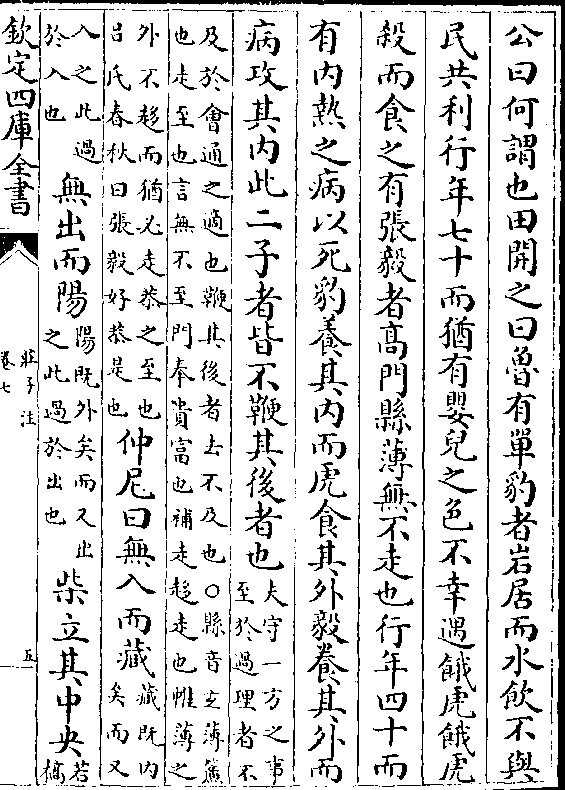 公曰何謂也田開之曰魯有單豹者岩居而水飲不與
民共利行年七十而猶有嬰兒之色不幸遇餓虎餓虎
殺而食之有張毅者高門縣薄無不走也行年四十而
有內熱之病以死豹養其內而虎食其外毅養其外而
病攻其內此二子者皆不鞭其後者也夫守一方之事至於過理者不
及於會通之適也鞭其後者去不及也○縣音玄薄簾
也走至也言無不至門奉貴富也補走趍走也帷薄之
外不趍而猶必走恭之至也呂氏春秋曰張毅好恭是也仲尼曰無入而藏藏既內矣而又
入之此過於入也無出而陽陽既外矣而又出之此過於出也柴立其中央若槁
欽定四庫全書
莊子注
卷七
五